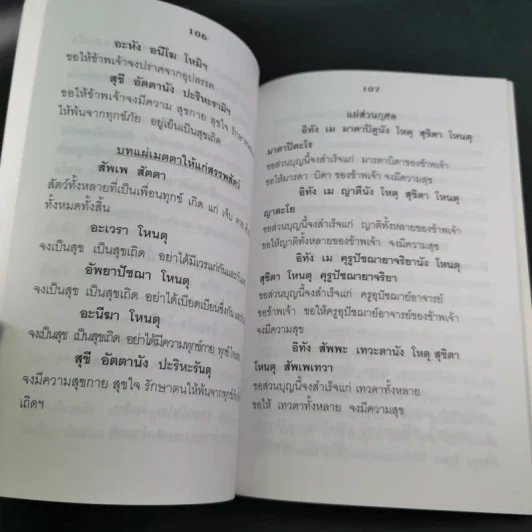 106
อะหัง อนีโฆ โหมิฯ
ขอให้ข้าพเจ้าจงปราศจากอุปสรรค
สุขี อัตตานัง ปะริหะรามิฯ
ขอให้ข้าพเจ้าจงมีความ สุขกาย สุขใจ รักษา
ให้พ้นจากทุกข์ภัย อยู่เย็นเป็นสุขเถิด
บทแผ่เมตตาให้แก่สรรพสัตว์
สัพเพ สัตตา
สัตว์ทั้งหลายที่เป็นเพื่อนทุกข์ เกิด แก่ เจ็บ ตาย
ทั้งหมดทั้งสิ้น
อะเวรา โหนตุ
จงเป็นสุข เป็นสุขเถิด อย่าได้มีเวรแก่กันและกัน
อัพยาปัชฌา โหนตุ
จงเป็นสุข เป็นสุขเถิด อย่าได้เบียดเบียนซึ่งกัน
อะนีฆา โหนตุ
จงเป็นสุข เป็นสุขเถิด อย่าได้มีความทุกข์กาย ทุกข์
สุขี อัตตานัง ปะริหะรันตุ
จงมีความสุขกาย สุขใจ รักษาตนให้พ้นจากทุกข์
เถิดฯ
107
แผ่ส่วนกุศล
อิทัง เม มาตาปิตูนัง โหตุ สุขิตา โหนตุ
มาตาปิตะโร
ขอส่วนบุญนี้จงสำเร็จแก่ มารดาบิดาของข้าพเจ้า
ขอให้มารดา บิดา ของข้าพเจ้า จงมีความสุข
อิทัง เม ญาตีนัง โหตุ สุขิตา โหนตุ
ญาตะโย
ขอส่วนบุญนี้จงสำเร็จแก่ ญาติทั้งหลายของข้าพเจ้า
ขอให้ญาติทั้งหลายของข้าพเจ้า จงมีความสุข
อิทัง เม คุรูปัชฌายาจริยานัง โหตุ
สุขิตา โหนตุ คุรูปัชฌายาจริยา
ขอส่วนบุญนี้จงสำเร็จแก่ ครูอุปัชฌาย์อาจารย์
ของข้าพเจ้า ขอให้ครูอุปัชฌาย์อาจารย์ของข้าพเจ้า
จงมีความสุข
อิทัง สัพพะ เทวะตานัง โหตุ สุขิตา
โหนตุ สัพเพเทวา
ขอส่วนบุญนี้จงสำเร็จแก่ เทวดาทั้งหลาย
ขอให้ เทวดาทั้งหลาย จงมีความสุข